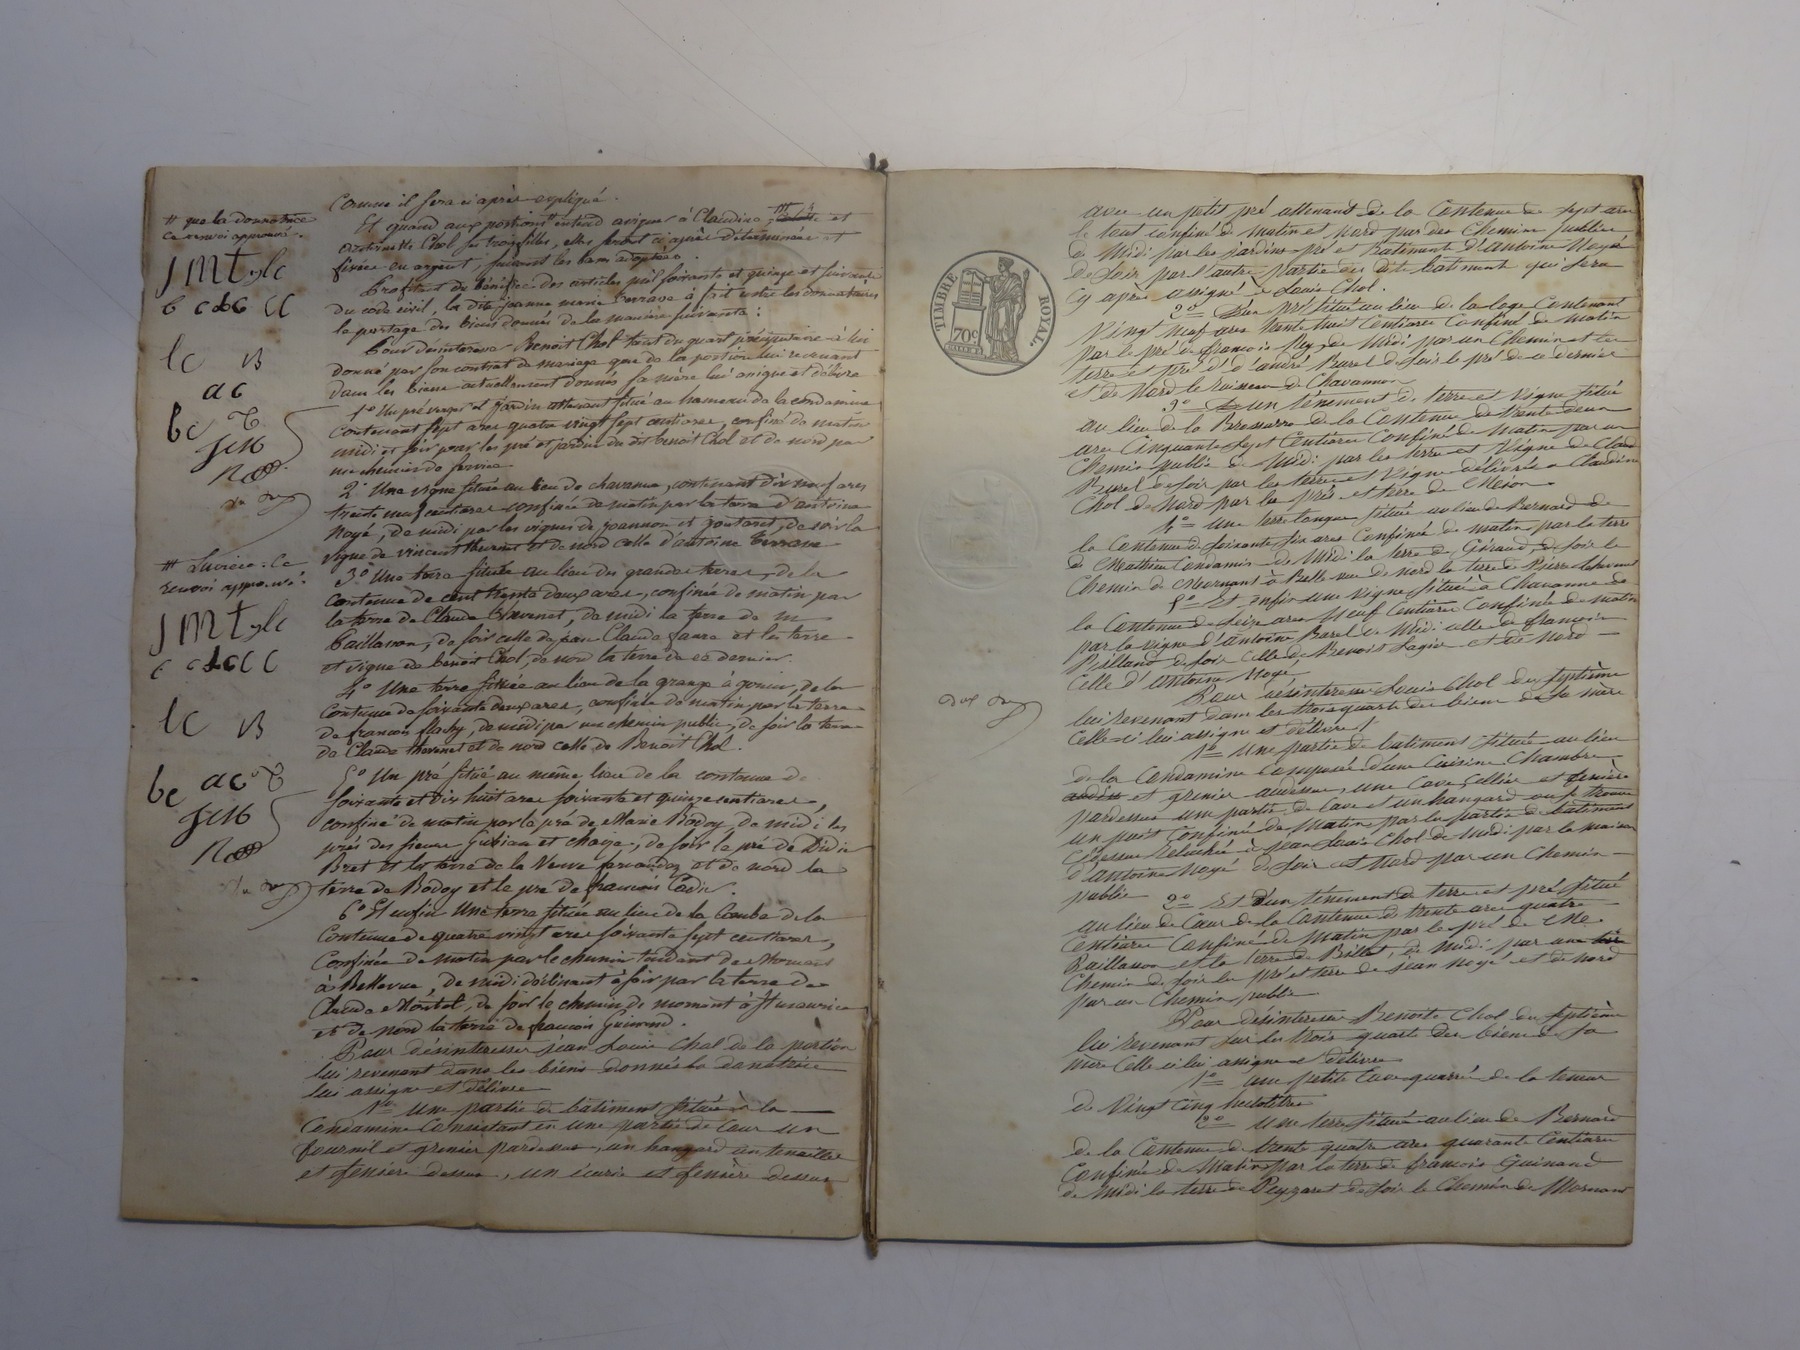 Comme il sera ci après expliqué.
Et quand aux portions entend assigner à Claudine, et
antoinette Chol ses trois filles, elles seront ci après déterminées et
fixées en argent, suivant les bases adoptées.
Profitant du bénéfice des articles mil soixante et quinze et suivants
du code civil, la dite jeanne marie a fait entre les donnataires
le partage des biens donnés de la manière suivante :
Pour désinteresser Benoit Chol tant du quart préciputaire à lui
donné par son contrat de mariage que de la portion lui revenant
dans les biens actuellement donnés sa mère lui assigne et délivre
1° Un pré verger et jardin attenant situé au hameau de la condamine
contenant sept ares quatre vingt sept centiares, confiné de matin
midi et soir pour les pré et jardin du dit benoit Chol et de nord par
un chemin de service
2° Une vigne située au lieu de chavanne, contenant dix neuf ares
trente neuf centiares confinée de matin par la terre d'antoine
Noyé, de midi par les vignes de joannon et, de soir la
vigne de vincent thevenet et de nord celle d'antoine
3° Une terre située au lieu des grandes terres, de la
contenue de cent trente deux ares, confinée de matin par
la terre de Claude thevenet, de midi la terre de m
Baillasson, de soir celle de jean Claude faure et les terre
et vigne de benoit Chol, de nord la terre de ce dernier.
4° Une terre située au lieu de la grange à gonin, de la
contenue de soixante deux ares, confinée de matin par la terre
de francois flachy, de midi par un chemin public, de soir la terre
de Claude thevenet et de nord celle de Benoit Chol.
5° Un pré situé au même lieu de la contenue de
soixante et dix huit ares soixante et quinze centiares,
confiné de matin par le pré de Marie Bodoy, de midi les
prés des sieurs Gubian et, de soir le pré de Didie
Bret et les terre de la Veuve et de nord la
terre de Bodoy et le pré de francois Cadie.
6° Et enfin Une terre située au lieu de la Combe de la
contenue de quatre vingt ares soixante sept centiares,
Confinée de matin par le chemin tendant de Mornant
à Bellevue, de midi déclinant à soir par la terre de
Claude Montel, de soir le chemin de mornant à St maurice
et de nord la terre de francois Guinand.
Pour désinteresser jean Louis Chol de la portion
lui revenant dans les biens donnés la donatrice
lui assigne et délivre
1° Une partie de batiment située à la
Condamine Consistant en une partie de Cour un
fournil et grenier pardessus, un hangard en tenaillée
et feniere dessus, un écurie et feniere dessus
# que la donnatrice
Ce renvoi approuvé.
JMT
lc B
ac
bc
# Lucrèce. Ce
renvoi approuvé.
JMT
lc B
bc ac
TIMBRE ROYAL.
70c
avec un petit pré attenant de la Contenue de sept ares
le tout confiné de matin et nord par des Chemins publics
de Midi par les jardins pré et batiment d'antoine Noyé
de Soir par l'autre partie des dits batiments qui sera
Cy après assigné à Louis Chol.
2° Un pré situé au lieu de la loge Contenant
Vingt neuf ares trente huit Centiares Confiné de Matin
par le pré de francois Rey, de Midi par un Chemin et les
terre et pré d'andré Burel de Soir le pré de ce dernier
et de Nord le Ruisseau de Chavannes
3° un ténement de terre et Vigne situé
au lieu de la Bressarre de la Contenue de Trente deux
ares Cinquante sept Centiares Confiné de Matin par un
Chemin public de Midi par les terre et Vigne de Claude
Burel de Soir par les terre et Vigne délivrées à Claudine
Chol de Nord par les prés et terre de
4° une terre longue située au lieu de Bernard de
la Contenue de soixante six ares Confinée de matin par la terre
de Mathieu Condamin de Midi la terre de Giraud, de soir le
Chemin de Mornant à Belle vue de nord la terre de Pierre
5° Et enfin une vigne située à Chavanne de
la Contenue de seize ares Neuf Centiares Confinée de matin
par la vigne d'antoine Barel de Midi celle de francois
Pilland de soir celle de Benoit Lagier et de Nord
Celle d'Antoine Noyé,
Pour désinteresser Louis Chol du Septième
lui revenant dans les trois quarts des biens de sa mère
Celle-ci lui assigne et délivre
1° une partie de batiment située au lieu
de la Condamine Composée d'une Cuisine Chambre
et grenier audessus, une Cave, Cellier et feniere
pardessus un partie de Cave et un hangard ou se trouve
un puit Confiné de Matin par la partie de batiment
Cidessus relachée à jean Louis Chol de Midi par la maison
d'Antoine Noyé de Soir et Nord par un Chemin
public
2° Et d'un ténement de terre et pré situé
au lieu de de la Contenue de trente ares quatre
Centiares Confiné de Matin par le pré de Me
Baillasson et la terre de Billet, de Midi par un
Chemin de soir les pré et terre de jean Noyé et de Nord
par un Chemin public
Pour désinteresser Benoite Chol du Septième
lui revenant sur les trois quarts des biens de sa
mère Celle ci lui assigne et délivre
1° une petite Cuve quarrée de la teneur
de Vingt Cinq hectolitres
2° une terre située au lieu de Bernard
de la Contenue de trente quatre ares quarante Centiares
Confinée de Matin par la terre de francois Guinand
de Midi la terre de Peyzaret de Soir le Chemin de Mornant